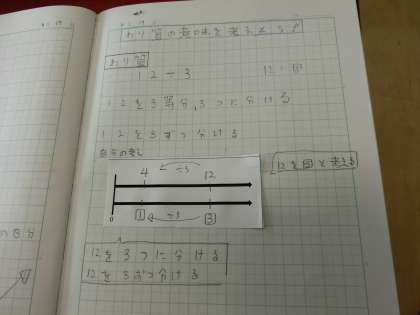 わり算の意味を考えよう
わり算
12÷3
12を3等分,3つに分ける
12を3ずつ分ける
自分の考え
÷3
4 12
0
÷3
1 3
12を3つに分ける
12を3ずつ分ける